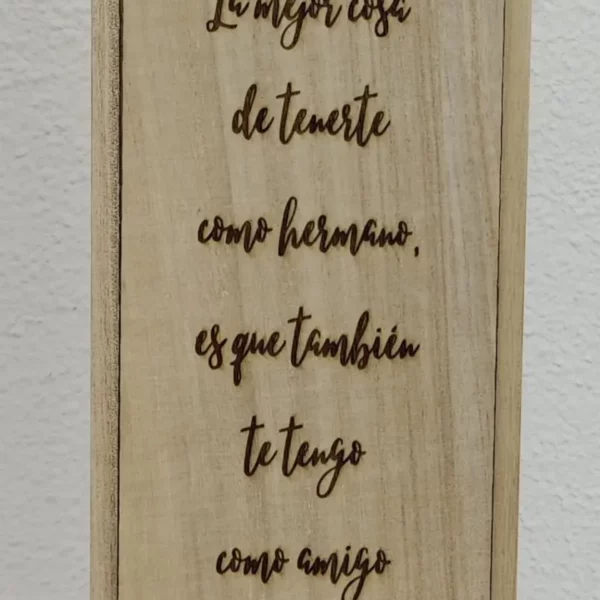 La mejor cosa
de tenerte
como hermano,
es que también
te tengo
como amigo